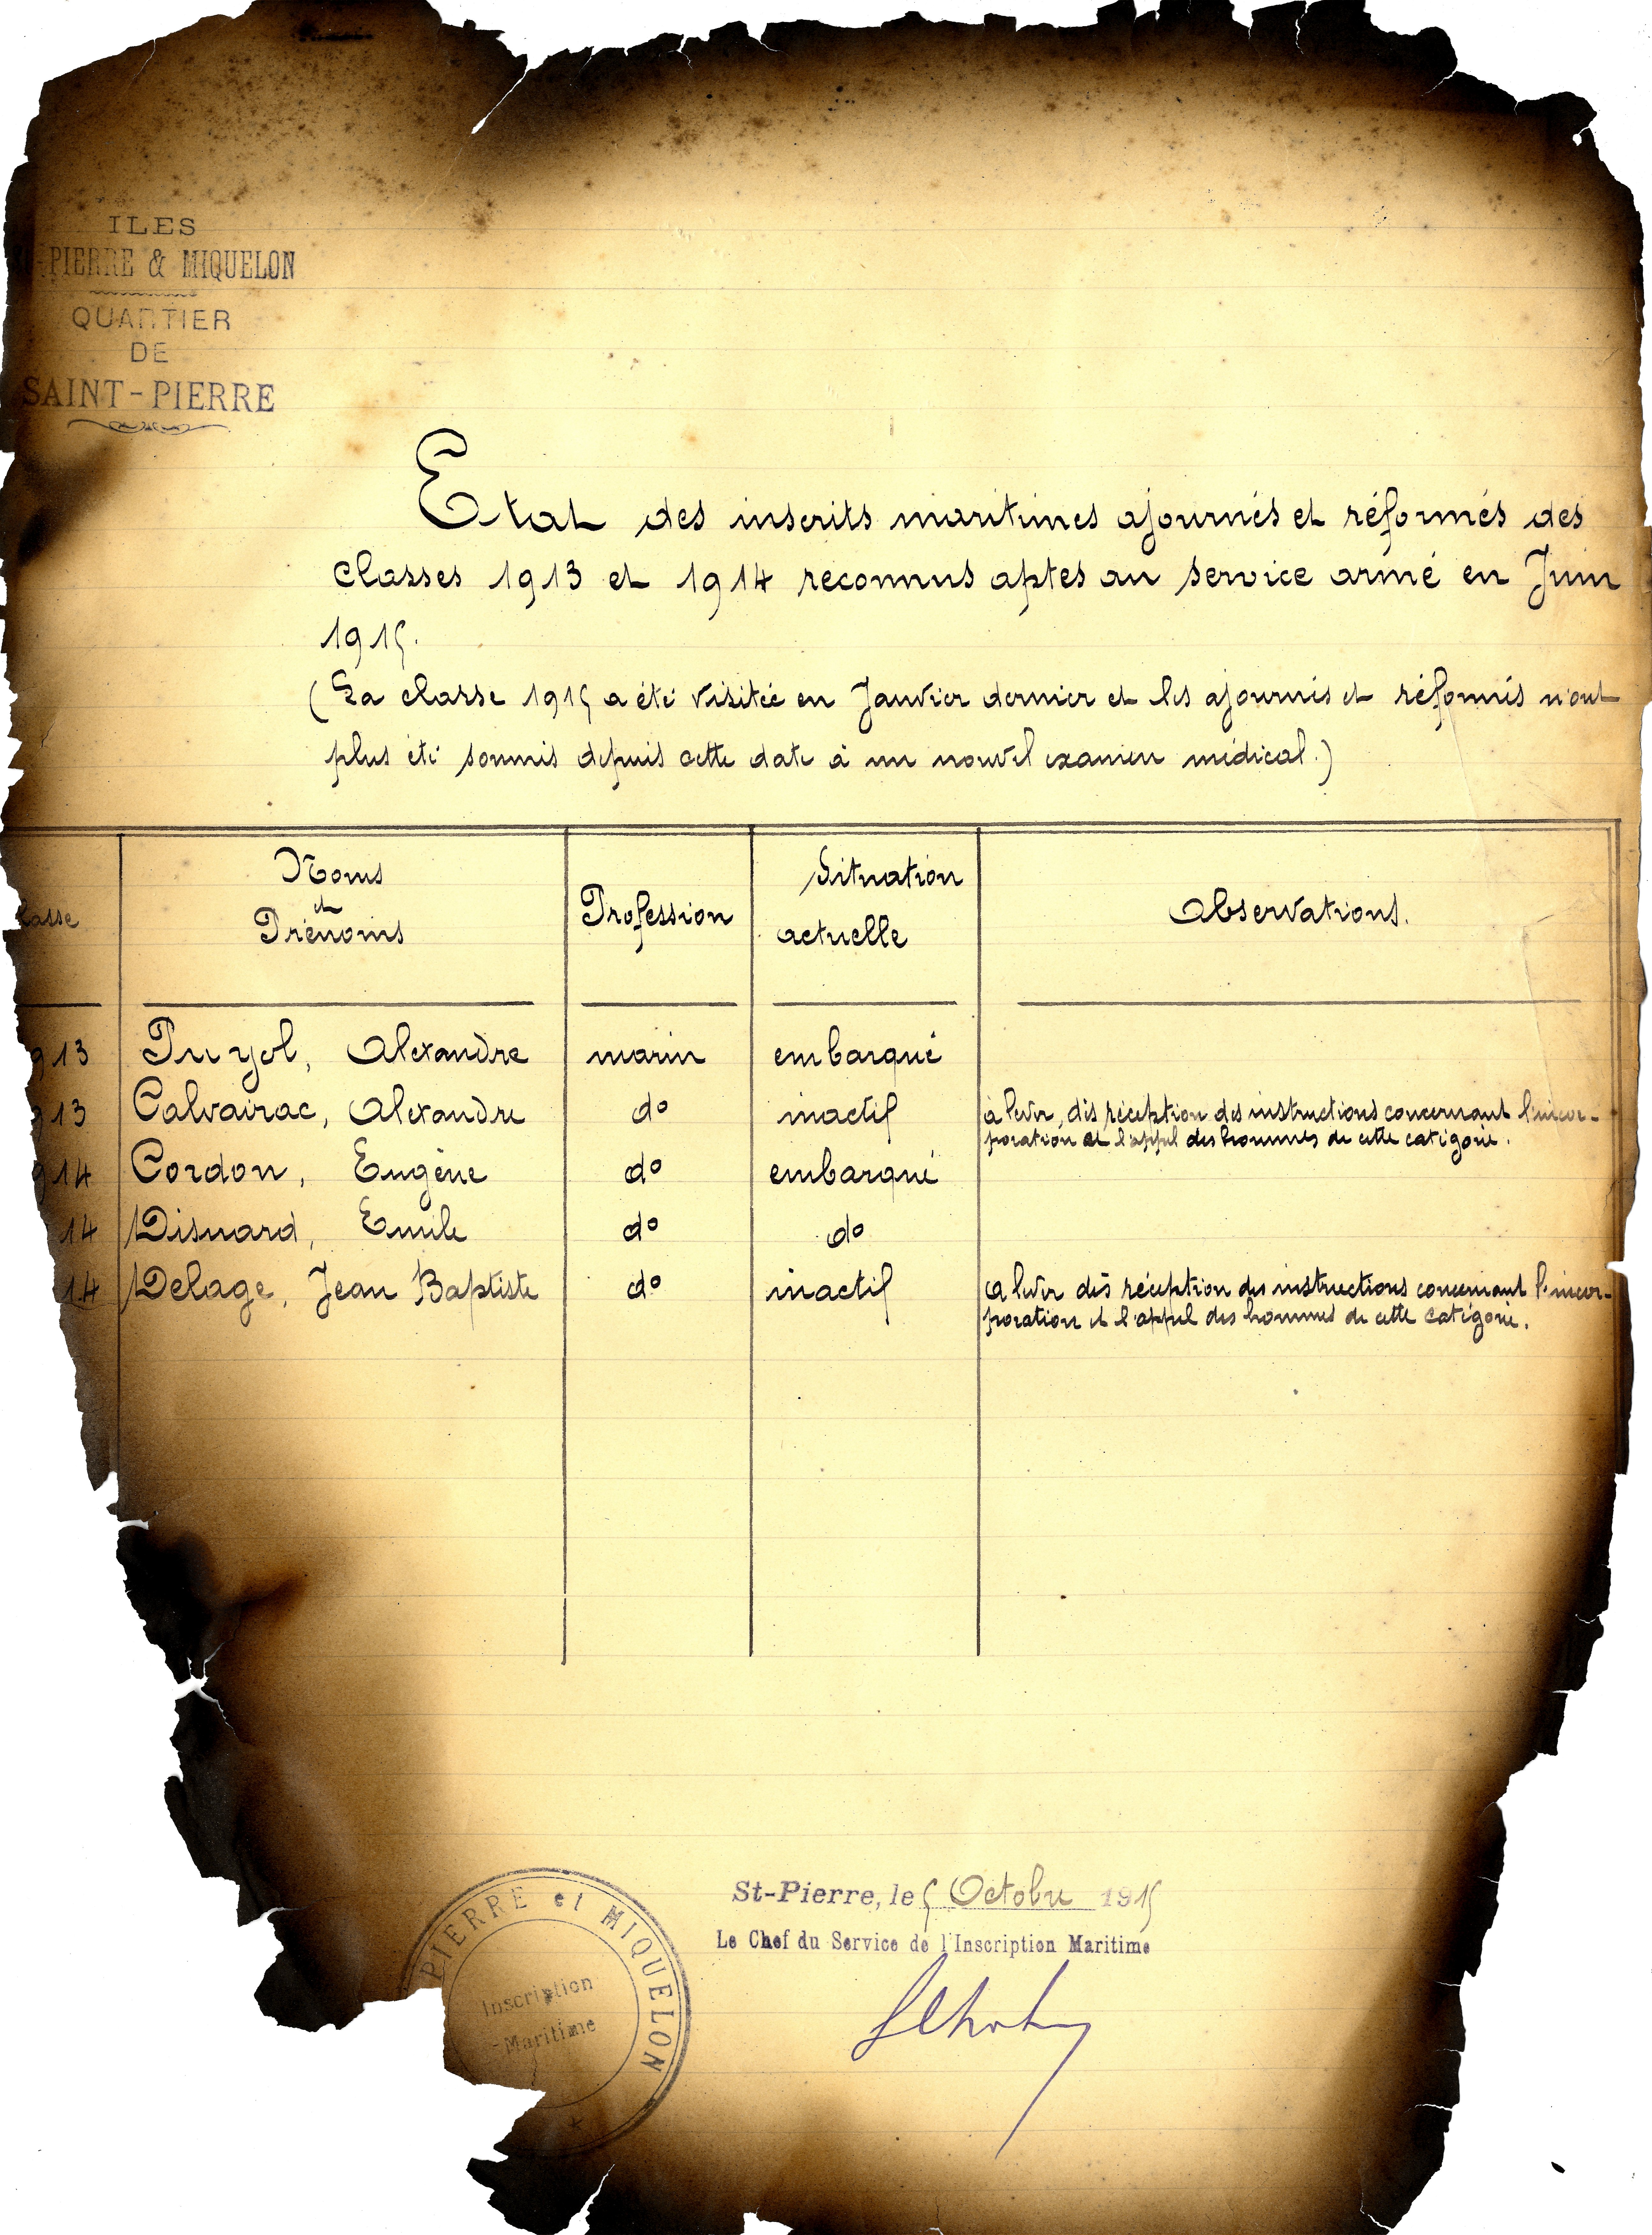 ILES
-PIERRE & MIQUELON
QUARTIER
DE
SAINT-PIERRE
Etat des inscrits maritimes ajournés et réformés des
classes 1913 et 1914 reconnus aptes au service armé en Juin
1915.
(La classe 1915 a été visitée en Janvier dernier et les ajournés et réformés n'ont
plus été soumis depuis cette date à un nouvel examen médical.)
lasse Noms et Prénoms Profession Situation actuelle Observations.
913 Puyol, Alexandre marin embarqué
913 Calvairac, Alexandre do inactif à lever, dès réception des instructions concernant l'incor-
poration et l'appel des hommes de cette catégorie.
914 Cordon, Eugène do embarqué
14 Disnard, Emile do do
14 Delage, Jean Baptiste do inactif à lever dès réception des instructions concernant l'incor-
poration et l'appel des hommes de cette catégorie.
St-Pierre, le 5 Octobre 1915
Le Chef du Service de l'Inscription Maritime
PIERRE et MIQUELON
Inscription
-Maritime